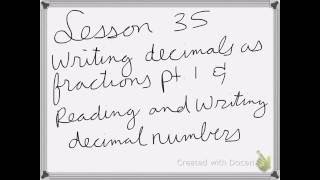 Lesson 35
Writing decimals as
fractions pt 1 &
Reading and Writing
decimal numbers
Created with Doceri